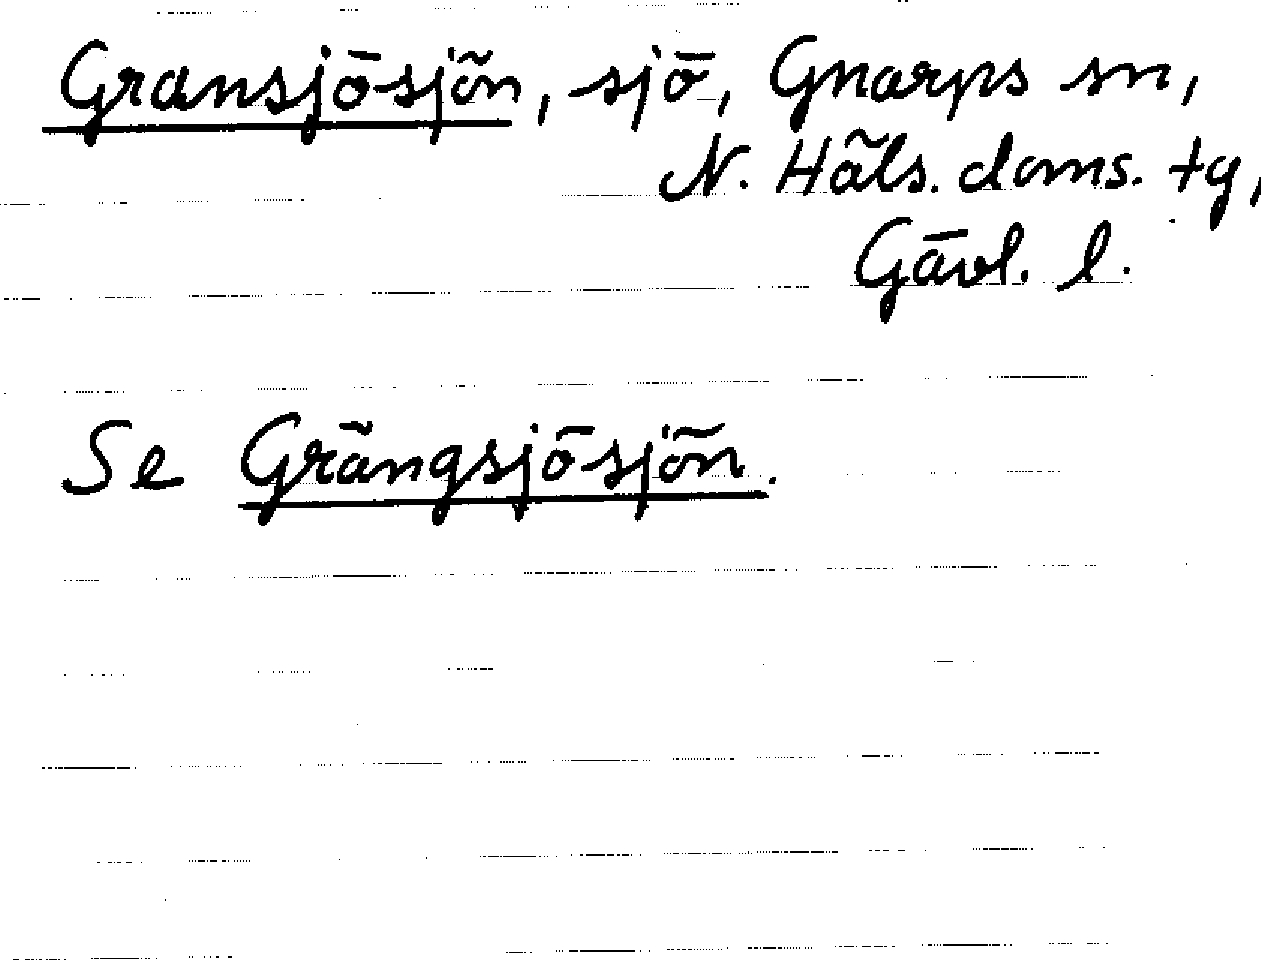 Gransjösjön, sjö, Gnarps sn,
N. Häls. doms. tg,
Gävl. l.
Se Grängsjösjön.